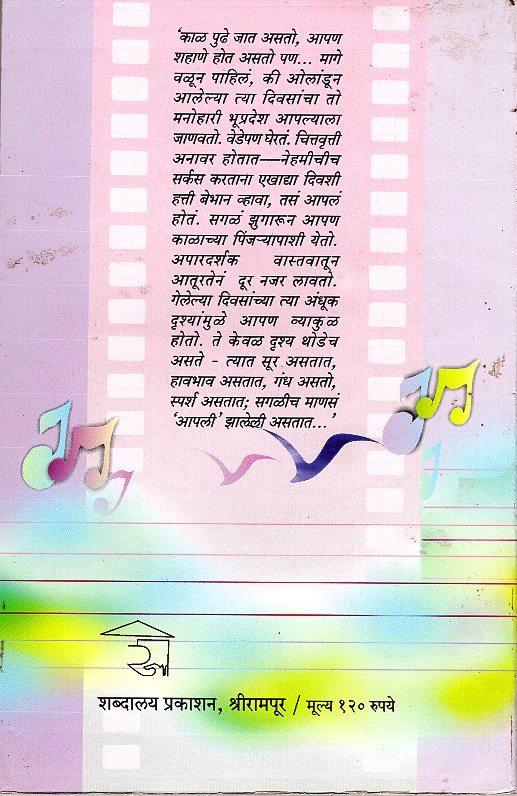 ‘काळ पुढे जात असतो, आपण
शहाणे होत असतो पण... मागे
वळून पाहिलं, की ओलांडून
आलेल्या त्या दिवसांचा तो
मनोहारी भूप्रदेश आपल्याला
जाणवतो. वेडेपण घेरतं. चित्तवृत्ती
अनावर होतात—नेहमीचीच
सर्कस करताना एखाद्या दिवशी
हत्ती बेभान व्हावा, तसं आपलं
होतं. सगळं झुगारून आपण
काळाच्या पिंजऱ्यापाशी येतो.
अपारदर्शक वास्तवातून
आतूरतेनं दूर नजर लावतो.
गेलेल्या दिवसांच्या त्या अंधूक
दृश्यांमुळे आपण व्याकुळ
होतो. ते केवळ दृश्य थोडेच
असते - त्यात सूर असतात,
हावभाव असतात, गंध असतो,
स्पर्श असतात; सगळीच माणसं
‘आपली’ झालेली असतात...’
शब्दालय प्रकाशन, श्रीरामपूर / मूल्य १२० रुपये